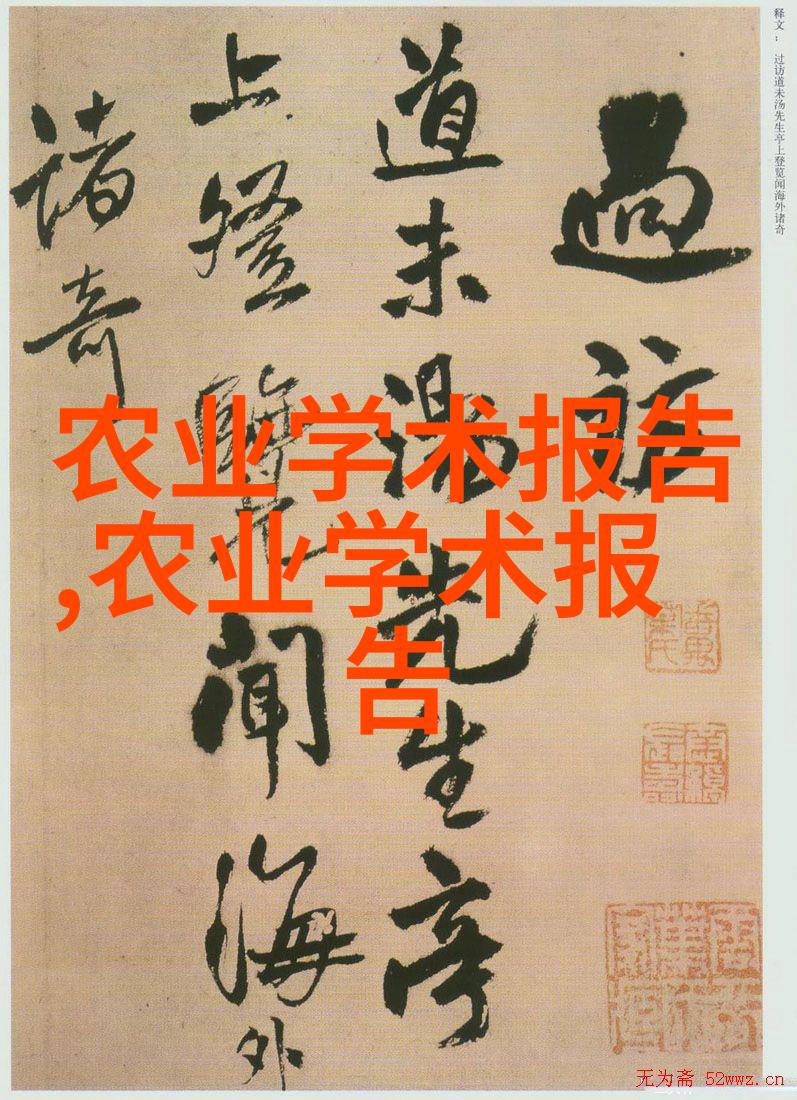 释文： 过访道未汤先生亭上登览闻海外诸奇
過訪
道未湯先生亭
上登覽聞海外
諸奇
农业学术报告
,农业学术报
告
无为斋 52wwz.cn